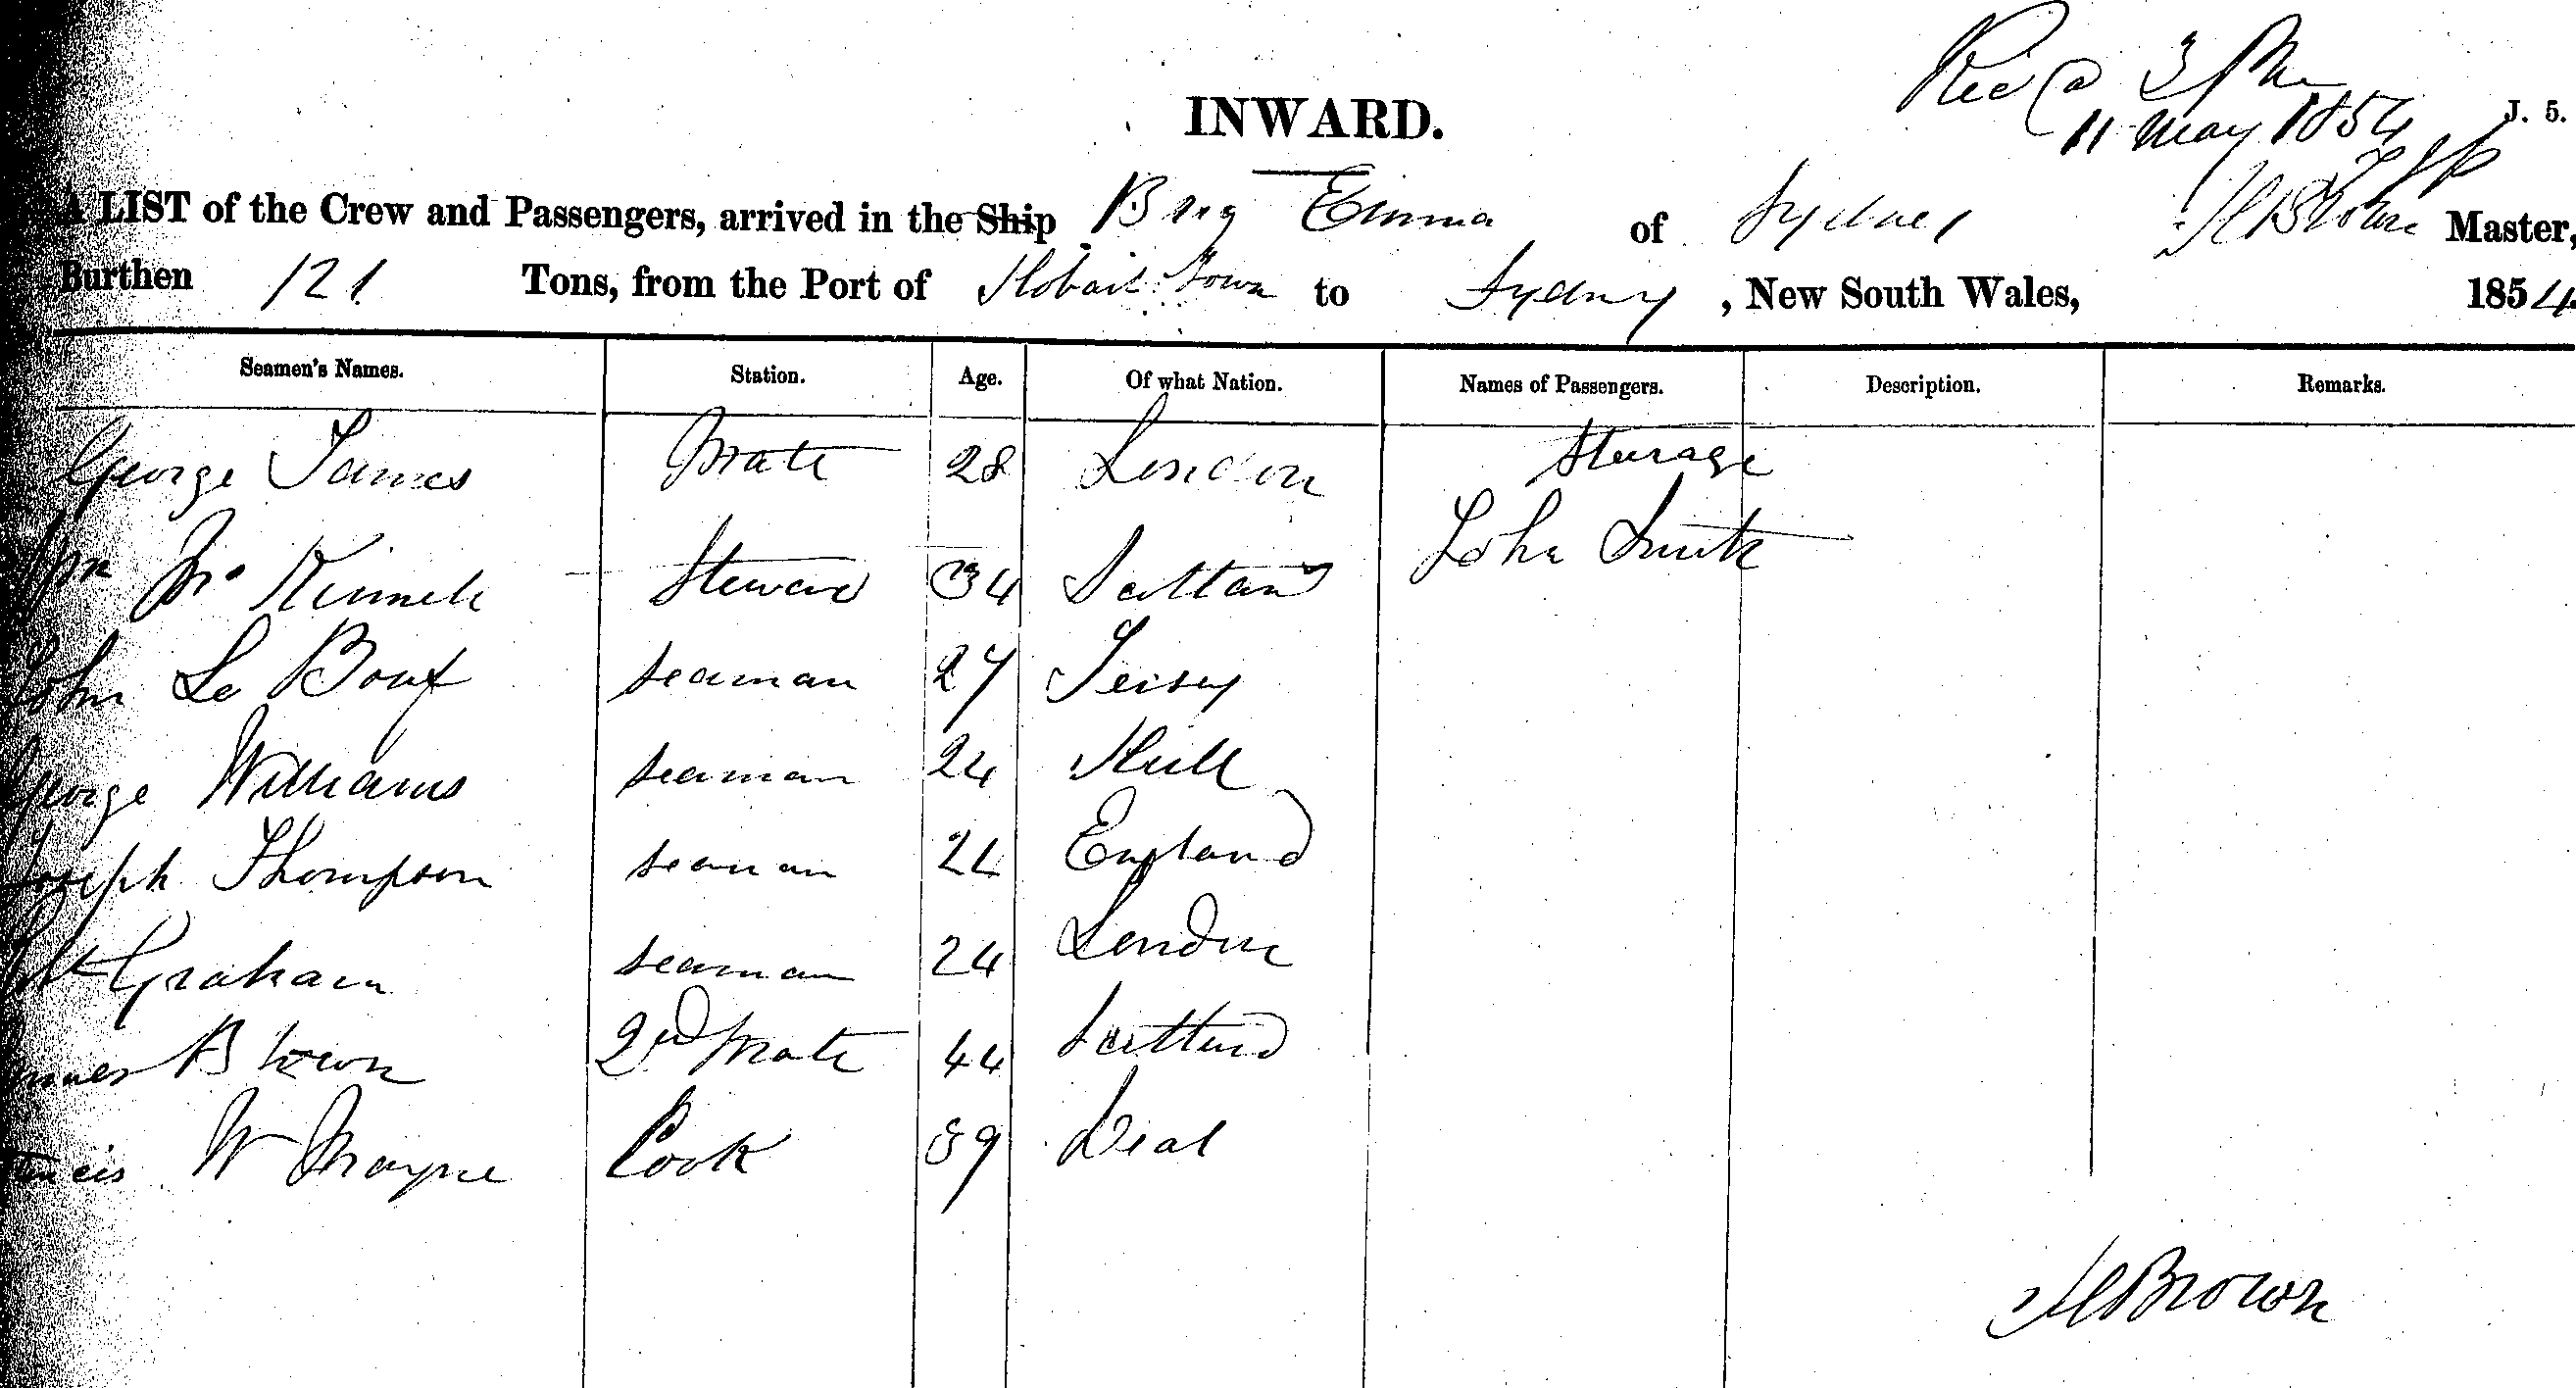 Recd @ 3 PM
11 May 1854
J. 5.
INWARD.
A LIST of the Crew and Passengers, arrived in the Ship Brig Emma of Sydney H Brown Master,
Burthen 121 Tons, from the Port of Hobart Town to Sydney, New South Wales, 1854
Seamen's Names. Station. Age. Of what Nation. Names of Passengers. Description. Remarks.
George James Mate 28 London Steerage
Wm Mc Steward 34 John Smith
John Le Seaman 27 Jersey
George Williams Seaman 24 Hull
Joseph Thompson Seaman 24 England
Graham Seaman 24 London
James Brown 2nd Mate 44 Scotland
Francis W Mayne Cook 39 Deal
H Brown